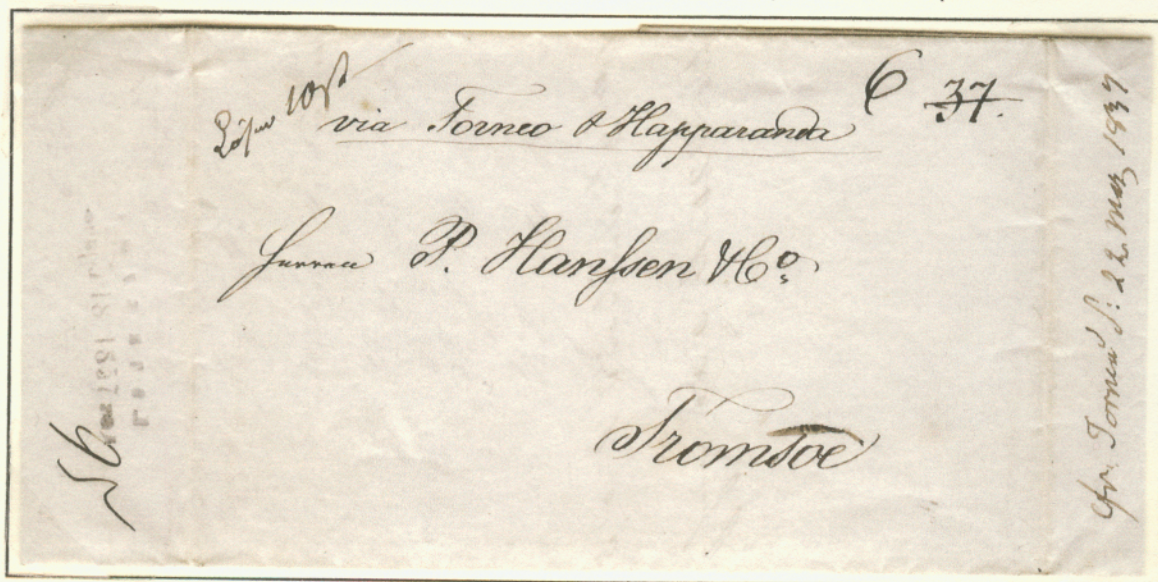 via Torneo & Happaranda
6 37.
Herren P. Hanssen & Co.
Tromsoe
fr. Torneå d: 22 Marz 1837